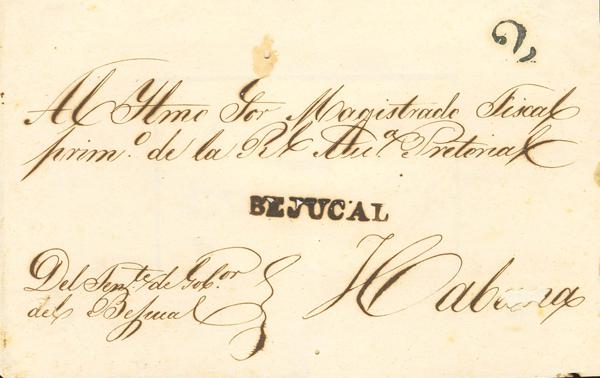 2
Al Ylmo Sor Magistrado Fiscal
prim.º de la Rl. Auª Pretorial
BEJUCAL
Del Tente. de Gobor.
del Bejucal
Habana